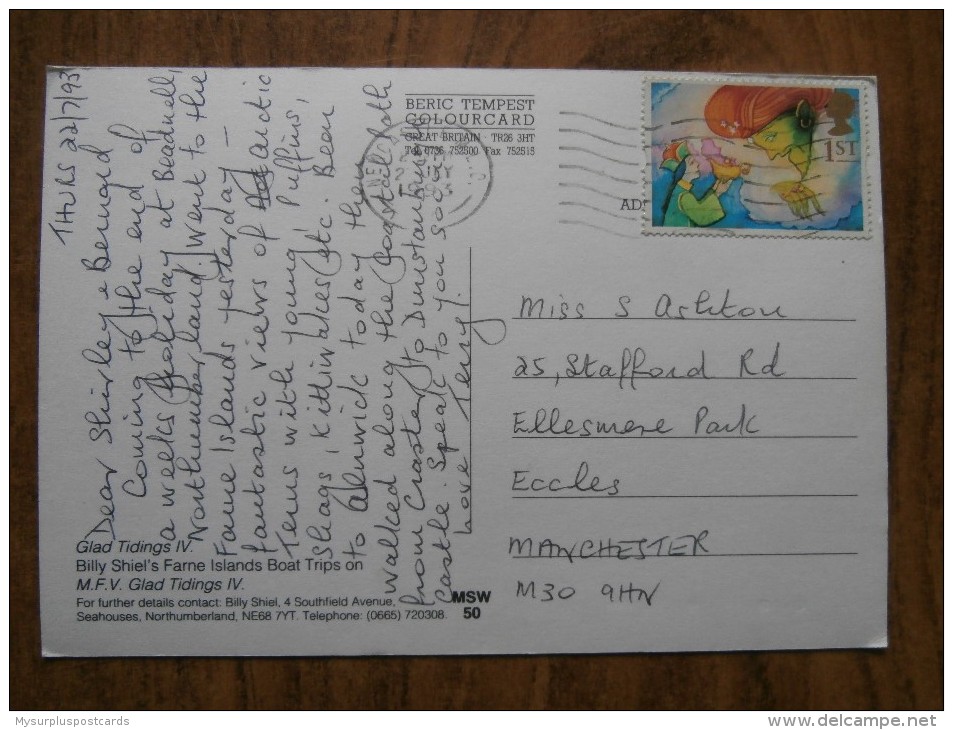 THURS 22/7/93
Dear Shirley & Bernard
Coming to the end of
a weeks holiday at Beadnell,
Northumberland. Went to the
Farne Islands yesterday –
fantastic views of Arctic
Terns with young, Puffins,
Shags, kittiwakes etc. Been
to Alnwick today then
walked along the coastal path
from Craster to Dunstanburgh
Castle. Speak to you soon
Love Terry.
BERIC TEMPEST
COLOURCARD
GREAT BRITAIN · TR26 3HT
Tel. 0736 752500 Fax 752515
1ST
Miss S Ashton
25, Stafford Rd
Ellesmere Park
Eccles
MANCHESTER
M30 9HN
Glad Tidings IV.
Billy Shiel's Farne Islands Boat Trips on
M.F.V. Glad Tidings IV.
For further details contact: Billy Shiel, 4 Southfield Avenue,
Seahouses, Northumberland, NE68 7YT. Telephone: (0665) 720308.
MSW
50
Mysurpluspostcards
www.delcampe.net